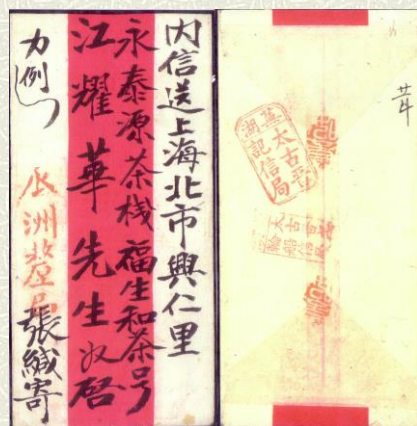 内信送上海北市興仁里
永泰源茶栈福生和茶号
江耀華先生收啓
力例
洲釐局
張緘寄
蕪湖
太古晋
記信局